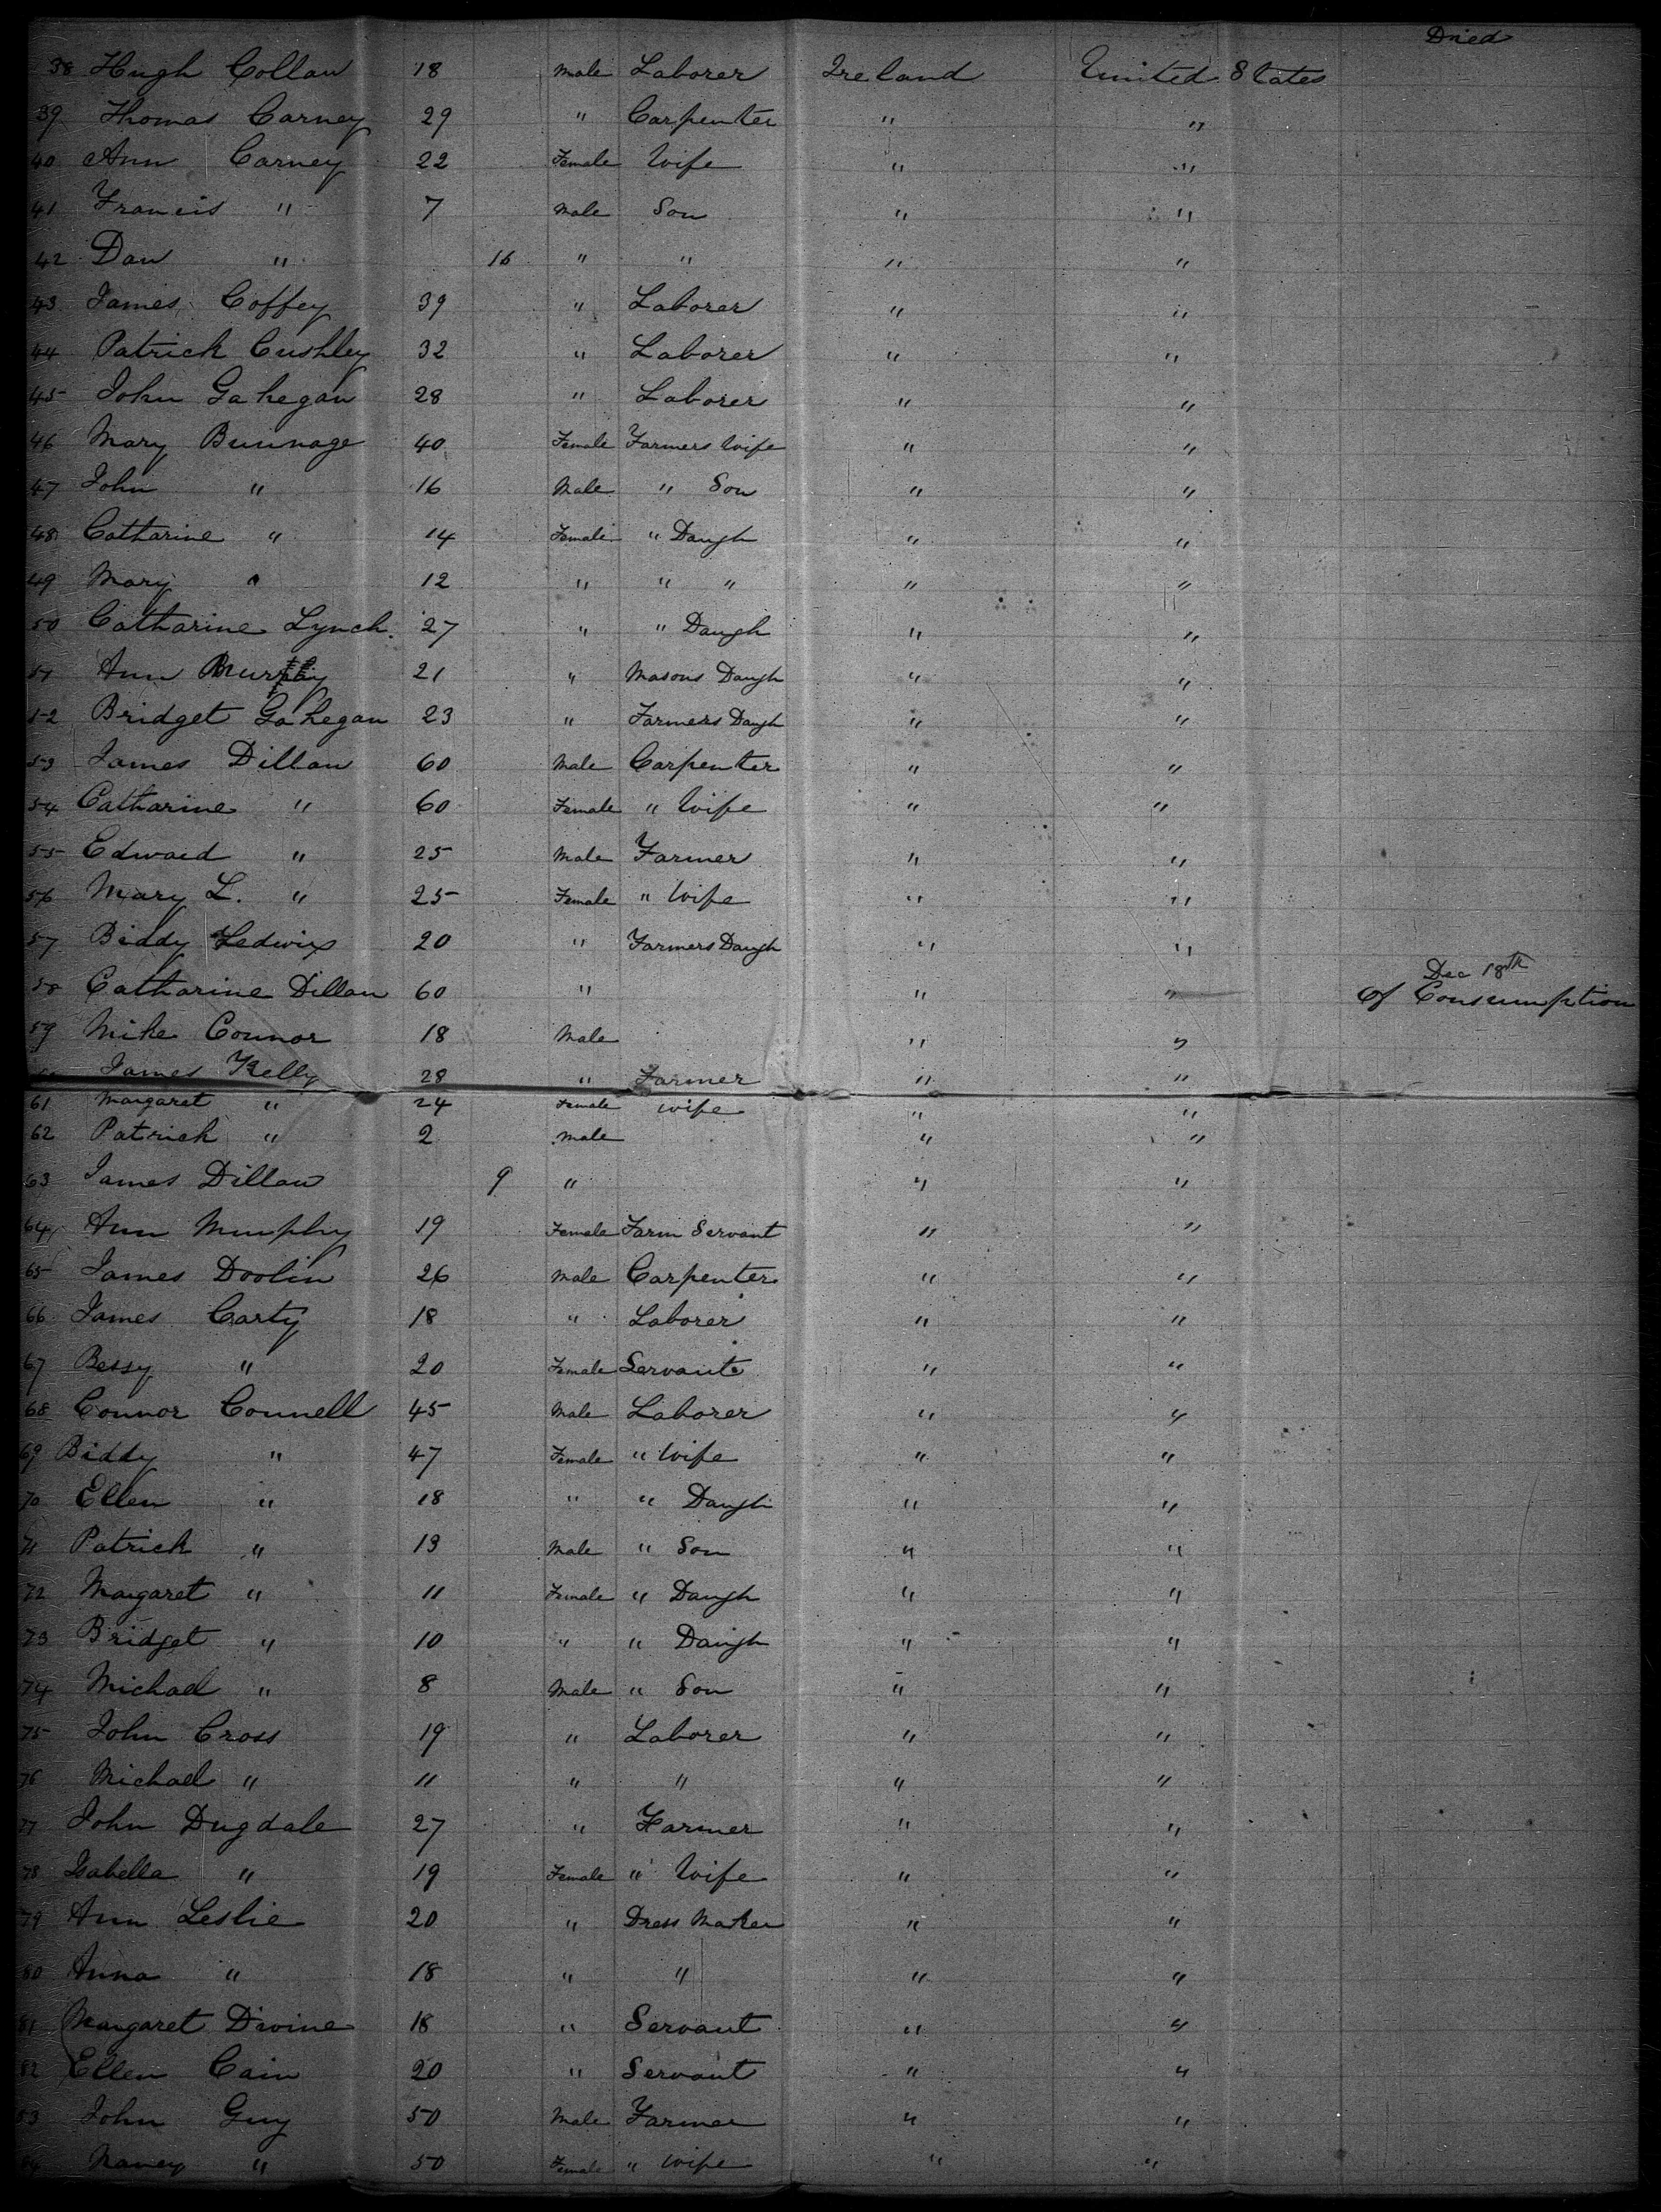 Died
38 Hugh Collan 18 Male Laborer Ireland United States
39 Thomas Carney 29 " Carpenter " "
40 Ann Carney 22 Female Wife " "
41 Francis " 7 Male Son " "
42 Dan " 16 " " " "
43 James Coffey 39 " Laborer " "
44 Patrick Cushley 32 " Laborer " "
45 John Gahegan 28 " Laborer " "
46 Mary Bunnage 40 Female Farmers Wife " "
47 John " 16 Male " Son " "
48 Catharine " 14 Female " Daugh " "
49 Mary " 12 " " " " "
50 Catharine Lynch 27 " " Daugh " "
51 Ann 21 " Masons Daugh " "
52 Bridget Gahegan 23 " Farmers Daugh " "
53 James Dillan 60 Male Carpenter " "
54 Catharine " 60 Female " Wife " "
55 Edward " 25 Male Farmer " "
56 Mary L. " 25 Female " Wife " "
57 Biddy Ledwix 20 " Farmers Daugh " "
Dec 18th
58 Catharine Dillan 60 " " " Of Consumption
59 Mike Connor 18 Male " "
James Kelly 28 " Farmer " "
61 Margaret " 24 Female wife " "
62 Patrick " 2 Male " "
63 James Dillan 9 " " "
64 Ann Murphy 19 Female Farm Servant " "
65 James Doolin 26 Male Carpenter " "
66 James Carty 18 " Laborer " "
67 Bessy " 20 Female Servant " "
68 Connor Connell 45 Male Laborer " "
69 Biddy " 47 Female " Wife " "
70 Ellen " 18 " " Daugh " "
71 Patrick " 13 Male " Son " "
72 Margaret " 11 Female " Daugh " "
73 Bridget " 10 " " Daugh " "
74 Michael " 8 Male " Son " "
75 John Cross 19 " Laborer " "
76 Michael " 11 " " " "
77 John Dugdale 27 " Farmer " "
78 Isabella " 19 Female " Wife " "
79 Ann Leslie 20 " Dress Maker " "
80 Anna " 18 " " " "
81 Margaret Divine 18 " Servant " "
82 Ellen Cain 20 " Servant " "
83 John Guy 50 Male Farmer " "
84 Nancy " 50 Female " Wife " "